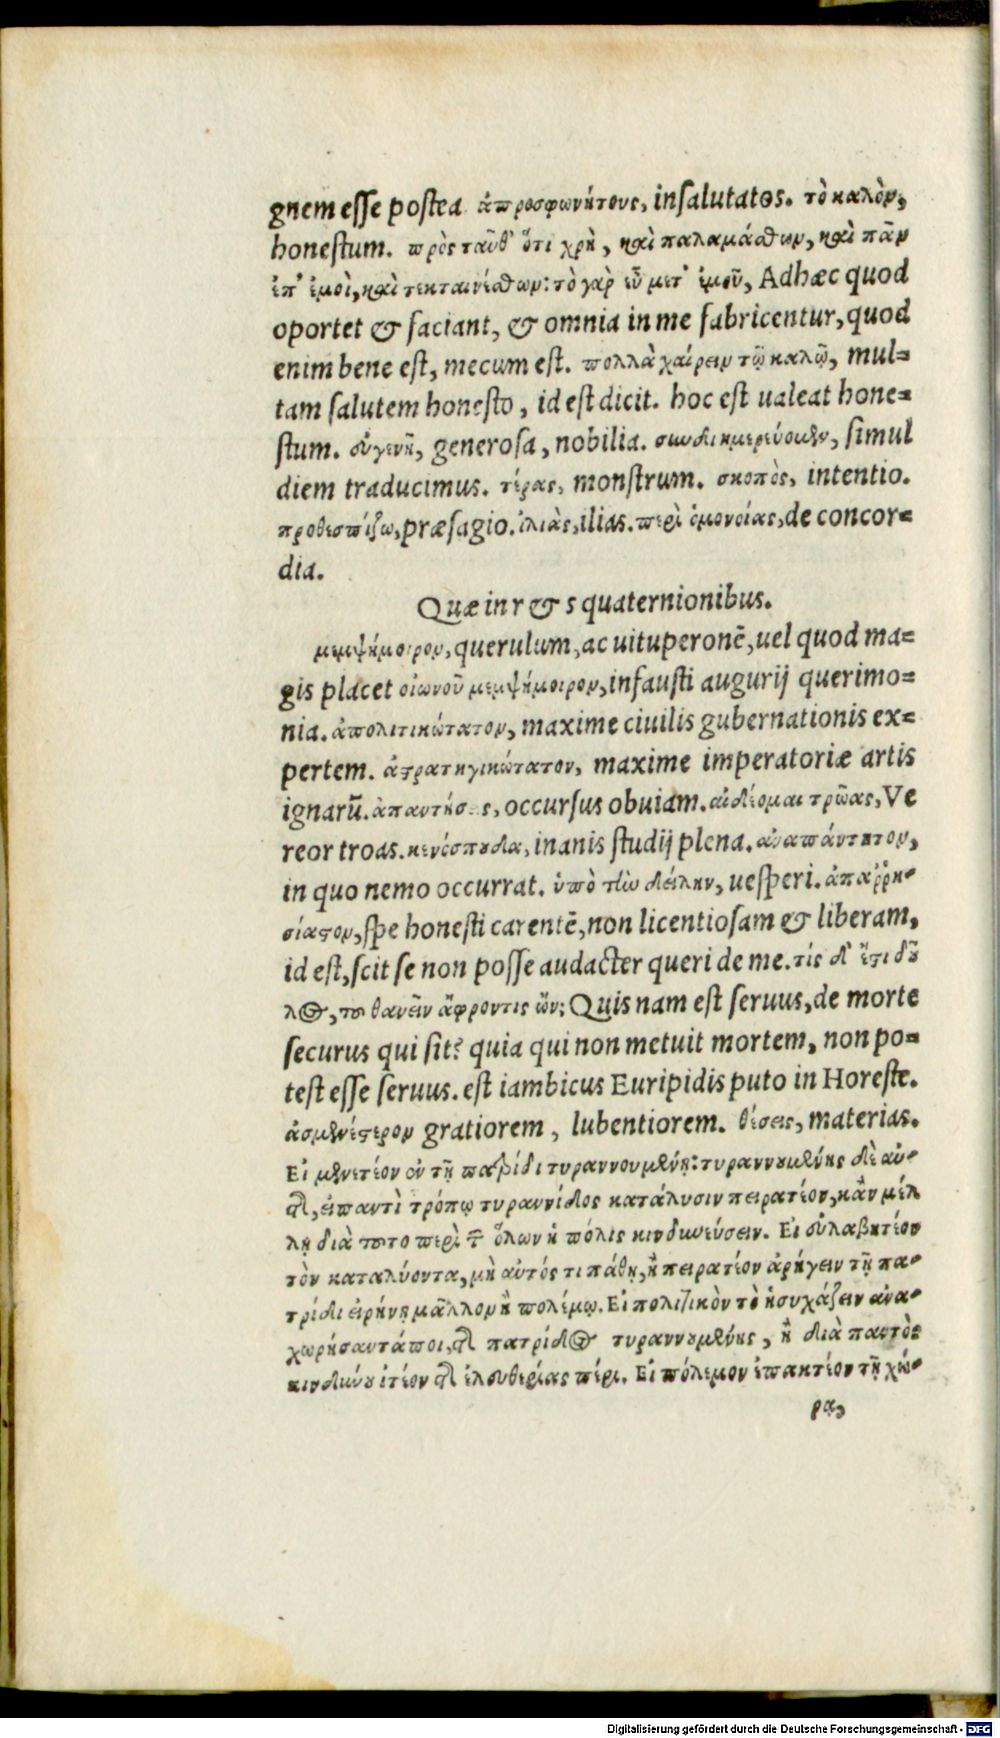 gnem esse postea ἀπροσφωνήτους, insalutatos. τὸ καλὸν,
honestum. πρὸς ταῦθ' ὅτι χρὴ, καὶ παλαμάσθων, καὶ πᾶν
ἐπ' ἐμοὶ, καὶ τεκταινέσθων: τὸ γὰρ εὖ μετ' ἐμοῦ, Adhæc quod
oportet & faciant, & omnia in me fabricentur, quod
enim bene est, mecum est. πολλὰ χαίρειν τῷ καλῷ, mul=
tam salutem honesto, id est dicit. hoc est ualeat hone=
stum. εὐγενῆ, generosa, nobilia. συνδιημερεύομεν, simul
diem traducimus. τέρας, monstrum. σκοπὸς, intentio.
προθεσπίζω, præsagio. ἰλιὰς, ilias. περὶ ὁμονοίας, de concor=
dia.
Quæ in r & s quaternionibus.
μεμψήμοιρον, querulum, ac uituperonē, uel quod ma=
gis placet οἰωνοῦ μεμψήμοιρον, infausti augurij querimo=
nia. ἀπολιτικώτατον, maxime ciuilis gubernationis ex=
pertem. ἀστρατηγικώτατον, maxime imperatoriæ artis
ignarū. ἀπαντήσ s, occursus obuiam. αἰδέομαι τρῶας, Ve
reor troas. κενόσπουδα, inanis studij plena. ἀναπάντητον,
in quo nemo occurrat. ὑπὸ τὴν δείλην, uesperi. ἀπαῤῥη-
σίαστον, spe honesti carentē, non licentiosam & liberam,
id est, scit se non posse audacter queri de me. τίς δ' ἔστι δοῦ
λος, τοῦ θανεῖν ἄφροντις ὤν; Quis nam est seruus, de morte
securus qui sit? quia qui non metuit mortem, non po=
test esse seruus. est iambicus Euripidis puto in Horeste.
ἀσμενέστερον gratiorem, lubentiorem. θέσεις, materias.
Εἰ μενετέον ἐν τῇ πατρίδι τυραννουμένῃ: τυραννουμένης δὲ αὐ-
τῆς, εἰ παντὶ τρόπῳ τυραννίδος κατάλυσιν πειρατέον, κἂν μέλ
λῃ διὰ τοῦτο περὶ τῶν ὅλων ἡ πόλις κινδυνεύσειν. Εἰ εὐλαβητέον
τὸν καταλύοντα, μὴ αὐτός τι πάθῃ, ἢ πειρατέον ἀρήγειν τῇ πα-
τρίδι εἰρήνῃ μᾶλλον ἢ πολέμῳ. Εἰ πολιτικὸν τὸ ἡσυχάζειν ἀνα-
χωρήσαντά ποι, τῆς πατρίδος τυραννουμένης, ἢ διὰ παντὸς
κινδύνου ἰτέον τῆς ἐλευθερίας πέρι. Εἰ πόλεμον ἐπακτέον τῇ χώ-
ρᾳ,
Digitalisierung gefördert durch die Deutsche Forschungsgemeinschaft - DFG